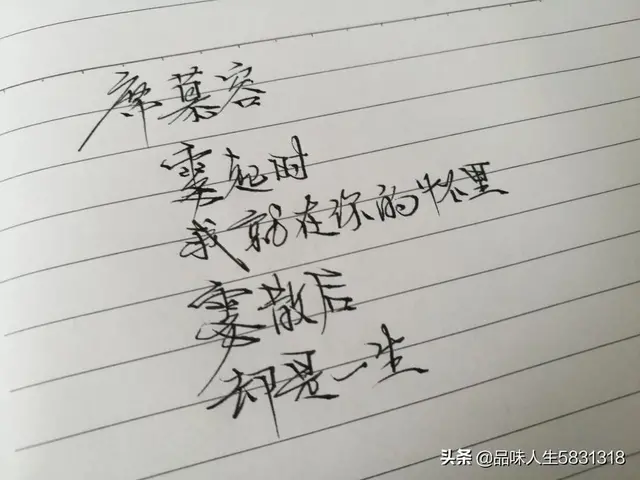 席慕容
雾起时
我就在你的怀里
雾散后
却是一生
头条 @品味人生5831318